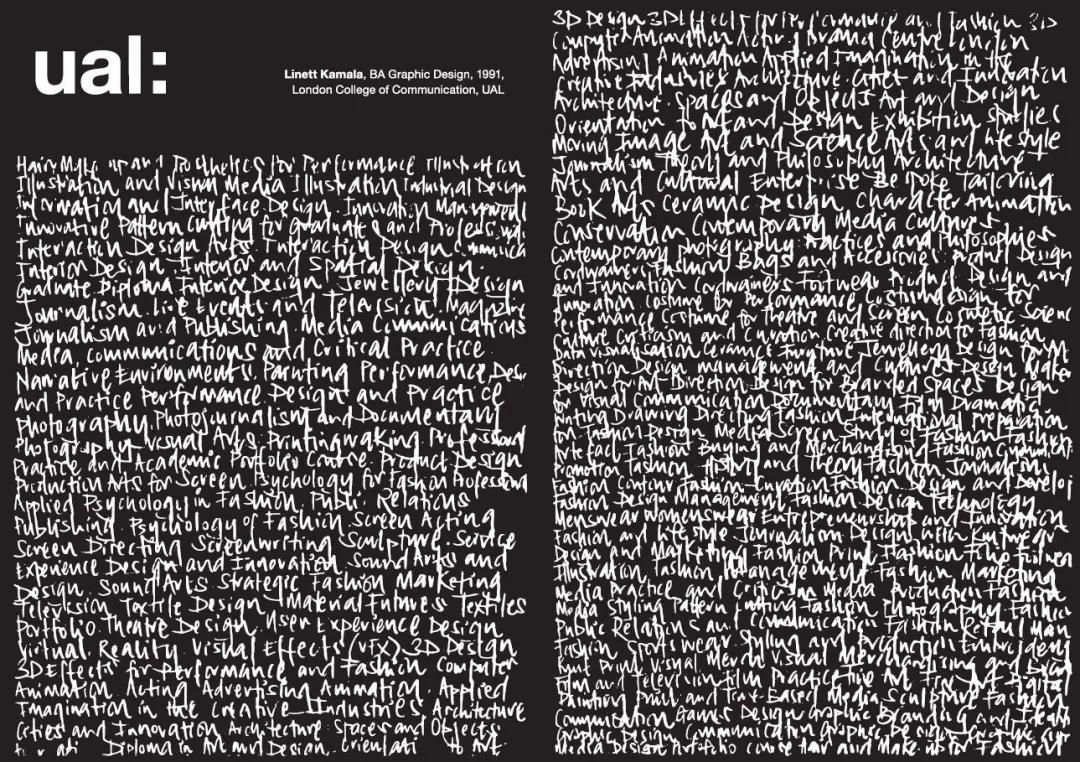 ual:
Linett Kamala, BA Graphic Design, 1991,
London College of Communication, UAL
Hair Make up and Prosthetics for Performance Illustration
Illustration and Visual Media Illustration Industrial Design
Information and Interface Design. Innovation Management
Innovative Pattern Cutting for Graduates and Professional
Interaction Design Arts. Interaction Design
Interior Design. Interior and Spatial Design.
Graduate Diploma Interior Design. Jewellery Design
Journalism. Live Events and Television. Magazine
Journalism and Publishing. Media Communications
Media, communications and Critical Practice.
Narrative Environments. Painting Performance Design
and Practice Performance Design and Practice
photography. Photojournalism and Documentary
Photography. Visual Arts. Printmaking. Professional
Practice and Academic Portfolio Course. Product Design
Production Arts for Screen. Psychology for Fashion Professional
Applied Psychology in Fashion. Public Relations
Publishing. Psychology of Fashion Screen Acting
Screen Directing. Screenwriting. Sculpture. Service
Experience Design and Innovation. Sound Arts and
Design. Sound Arts Strategic Fashion Marketing
Television. Textile Design. Material Futures Textiles
Portfolio. Theatre Design. User Experience Design.
Virtual Reality. Visual Effects (VFX) 3D Design
3D Effects for performance and Fashion Computer
Animation. Acting. Advertising Animation. Applied
Imagination in the Creative Industries Architecture
Cities and Innovation Architecture Spaces and Objects
Diploma in Art and Design. Orientati to Art
3D Design 3D Effects for Performance and Fashion 3D
Computer Animation Acting Drama Centre London
Advertising Animation Applied Imagination in the
Creative Industries Architecture Cities and Innovation
Architecture. Spaces and Objects Art and Design
Orientation to Art and Design Exhibition Studies
Moving Image Art and Science Arts and lifestyle
Journalism Theory and Philosophy Architecture
Arts and Cultural Enterprise Bespoke Tailoring
Book Arts Ceramic Design, Character Animation
Conservation Contemporary Media Cultures
Contemporary photography Practices and Philosophies
Cordwainers Fashion Bags and Accessories Product Design
and Innovation Cordwainers Footwear Product Design and
Innovation Costume for Performance Costume design for
Performance Costume for Theatre and Screen Cosmetic Science
Culture Criticism and Curation Creative direction for Fashion
Data visualisation Ceramics Furniture Jewellery Design
Direction Design management and Cultures Design
Design for Art Direction Design for Branded Spaces Design
for Visual Communication Documentary Film Dramatic
Writing Drawing Directing Fashion International preparation
for Fashion Design Media Screen Study of Fashion Fashion
Artefact Fashion Buying and Merchandising Fashion Communication
Promotion Fashion History and Theory Fashion Journalism
Fashion Contour Fashion Curation Fashion Design and Develop
Fashion Design Management Fashion Design Technology
Menswear Womenswear Entrepreneurship and Innovation
Fashion and lifestyle Journalism Designs with Knitwear
Design and Marketing Fashion Print Fashion Film Futures
Illustration Fashion Management Fashion Marketing
Media Practice and Criticism Media Production Fashion
Media Styling Pattern Cutting Fashion Photography Fashion
Public Relations and Communication Fashion Retail Man
Fashion Sportswear Styling and Production
Print Visual Merch Visual Merchandising and
Film and Television Film Practice Fine Art Fine Art Digital
Painting Print and Time-Based Media Sculpture Fashion
Communication Games Design Graphic Branding and Identity
Graphic Design Communication Graphic Design
Media Design Portfolio course Hair and Make-up for Fashion